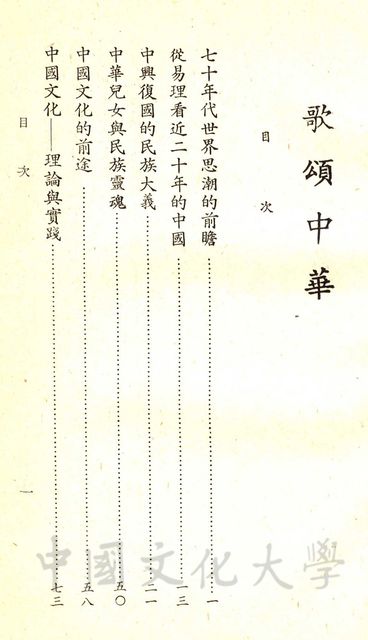 歌頌中華
目次
七十年代世界思潮的前瞻……一
從易理看近二十年的中國……一三
中興復國的民族大義……二一
中華兒女與民族靈魂……五〇
中國文化的前途……五八
中國文化——理論與實踐……七三
目次
一
中國文化大學